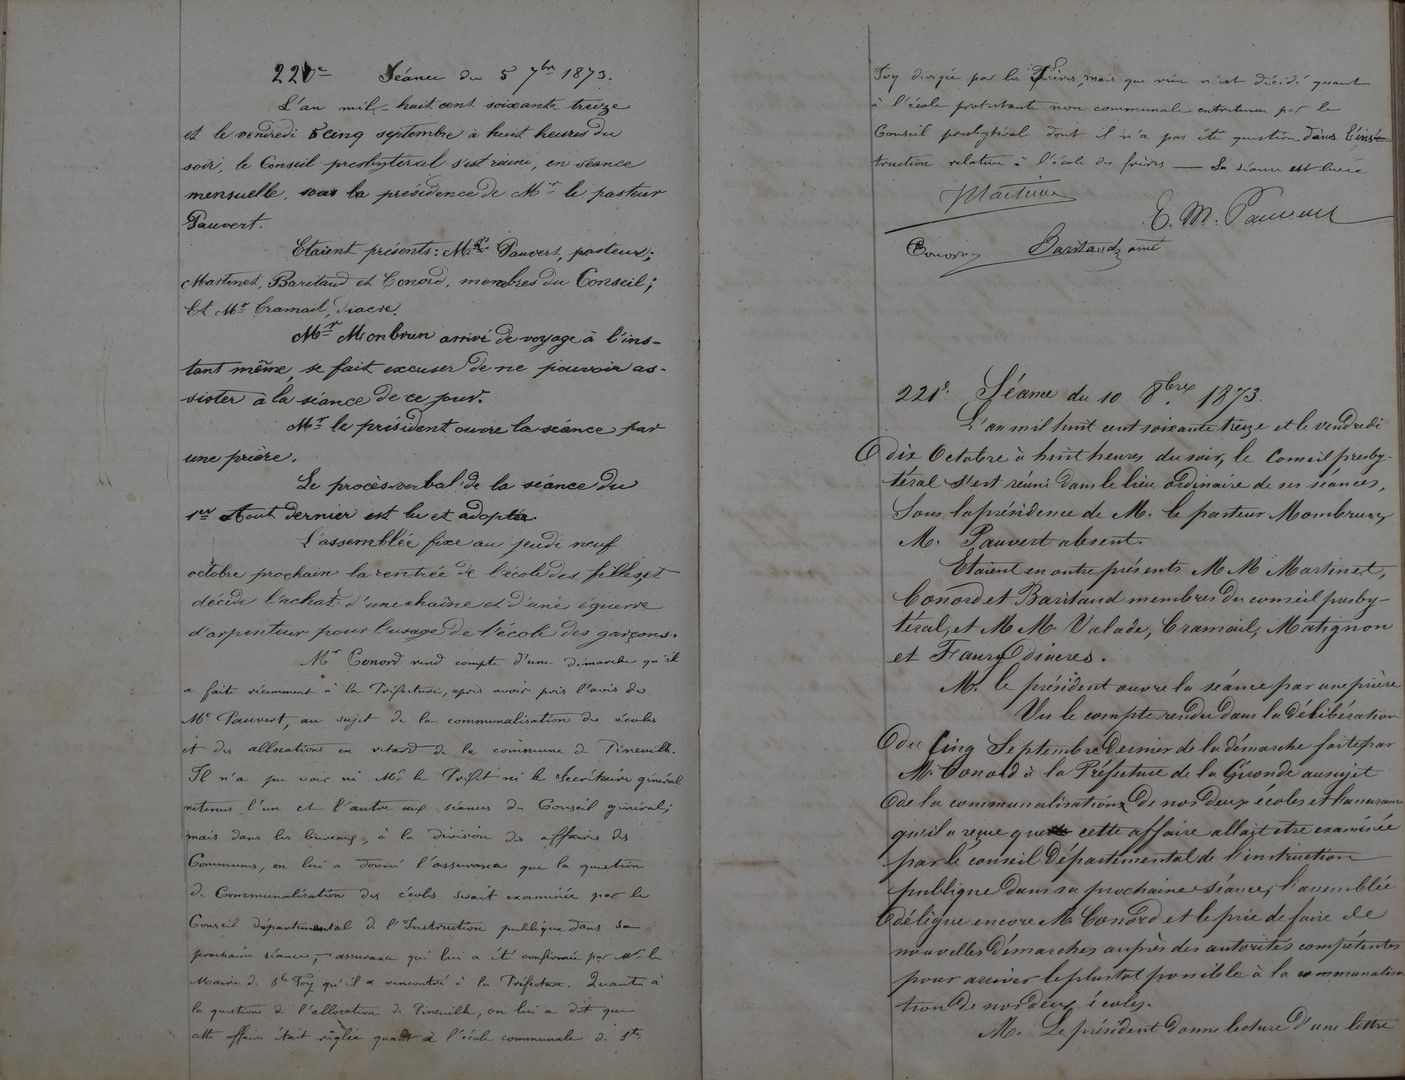 220e Séance du 5 7bre 1873.
L'an mil-huit cent soixante treize
et le vendredi cinq septembre à huit heures du
soir, le Conseil presbytéral s'est réuni, en séance
mensuelle, sous la présidence de Mr le pasteur
Pauvert.
Etaient présents: M.rs Pauvert, pasteur;
Martinet, Baritaud et Conord, membres du Conseil;
Et Mr Cramail, diacre.
Mr Monbrun arrivé de voyage à l'ins-
tant même, se fait excuser de ne pouvoir as-
sister à la séance de ce jour.
Mr le président ouvre la séance par
une prière.
Le procès-verbal de la séance du
1er Aout dernier est lu et adopté.
L'assemblée fixe au jeudi neuf
octobre prochain la rentrée de l'école des filles, et
décide l'achat d'une chaîne et d'une équerre
d'arpenteur pour l'usage de l'école des garçons.
Mr Conord rend compte d'une démarche qu'il
a faite récemment à la Préfecture, après avoir pris l'avis de
Mr Pauvert, au sujet de la communalisation des écoles
et des allocations en retard de la commune de Pineuilh.
Il n'a pu voir ni Mr le Préfet ni le Secrétaire général
retenus l'un et l'autre aux séances du Conseil général;
mais dans les bureaux, à la division des affaires des
Communes, on lui a donné l'assurance que la question
de Communalisation des écoles serait examinée par le
Conseil départemental de l'Instruction publique dans sa
prochaine séance, assurance qui lui a été confirmée par Mr le
Maire de Ste Foy qu'il a rencontré à la Préfecture. Quant à
la question de l'allocation de Pineuilh, on lui a dit que
cette affaire était réglée quant à l'école communale de Ste
Foy dirigée par les Frères, mais que rien n'est décidé quant
à l'école protestante non communale entretenue par le
Conseil presbytéral dont il n'a pas été question dans l'ins-
truction relative à l'école des frères — La séance est levée
Martinet
E. M. Pauvert
Conord Baritaud aîné
221e. Séance du 10 8bre 1873.
L'an mil huit cent soixante treize et le vendredi
dix Octobre à huit heures du soir, le Conseil presby-
téral s'est réuni dans le lieu ordinaire de ses séances,
Sous la présidence de M. le pasteur Mombrun,
M. Pauvert absent.
Etaient en outre présents MM Martinet,
Conord et Baritaud membres du conseil presby-
téral, et MM Valade, Cramail, Matignon
et Faury diacres.
M. le président ouvre la séance par une prière
Vu le compte rendu dans la délibération
du Cinq Septembre Dernier de la démarche faite par
M. Conord à la Préfecture de la Gironde au sujet
de la communalisation de nos deux écoles et l'assurance
qu'il a reçue que cette affaire allait etre examinée
par le conseil Départemental de l'instruction
publique dans sa prochaine séance, l'assemblée
délègue encore M. Conord et le prie de faire de
nouvelles démarches auprès des autorités compétentes
pour arriver le plus tot possible à la communalisa-
tion de nos deux écoles.
M. Le président donne lecture d'une lettre